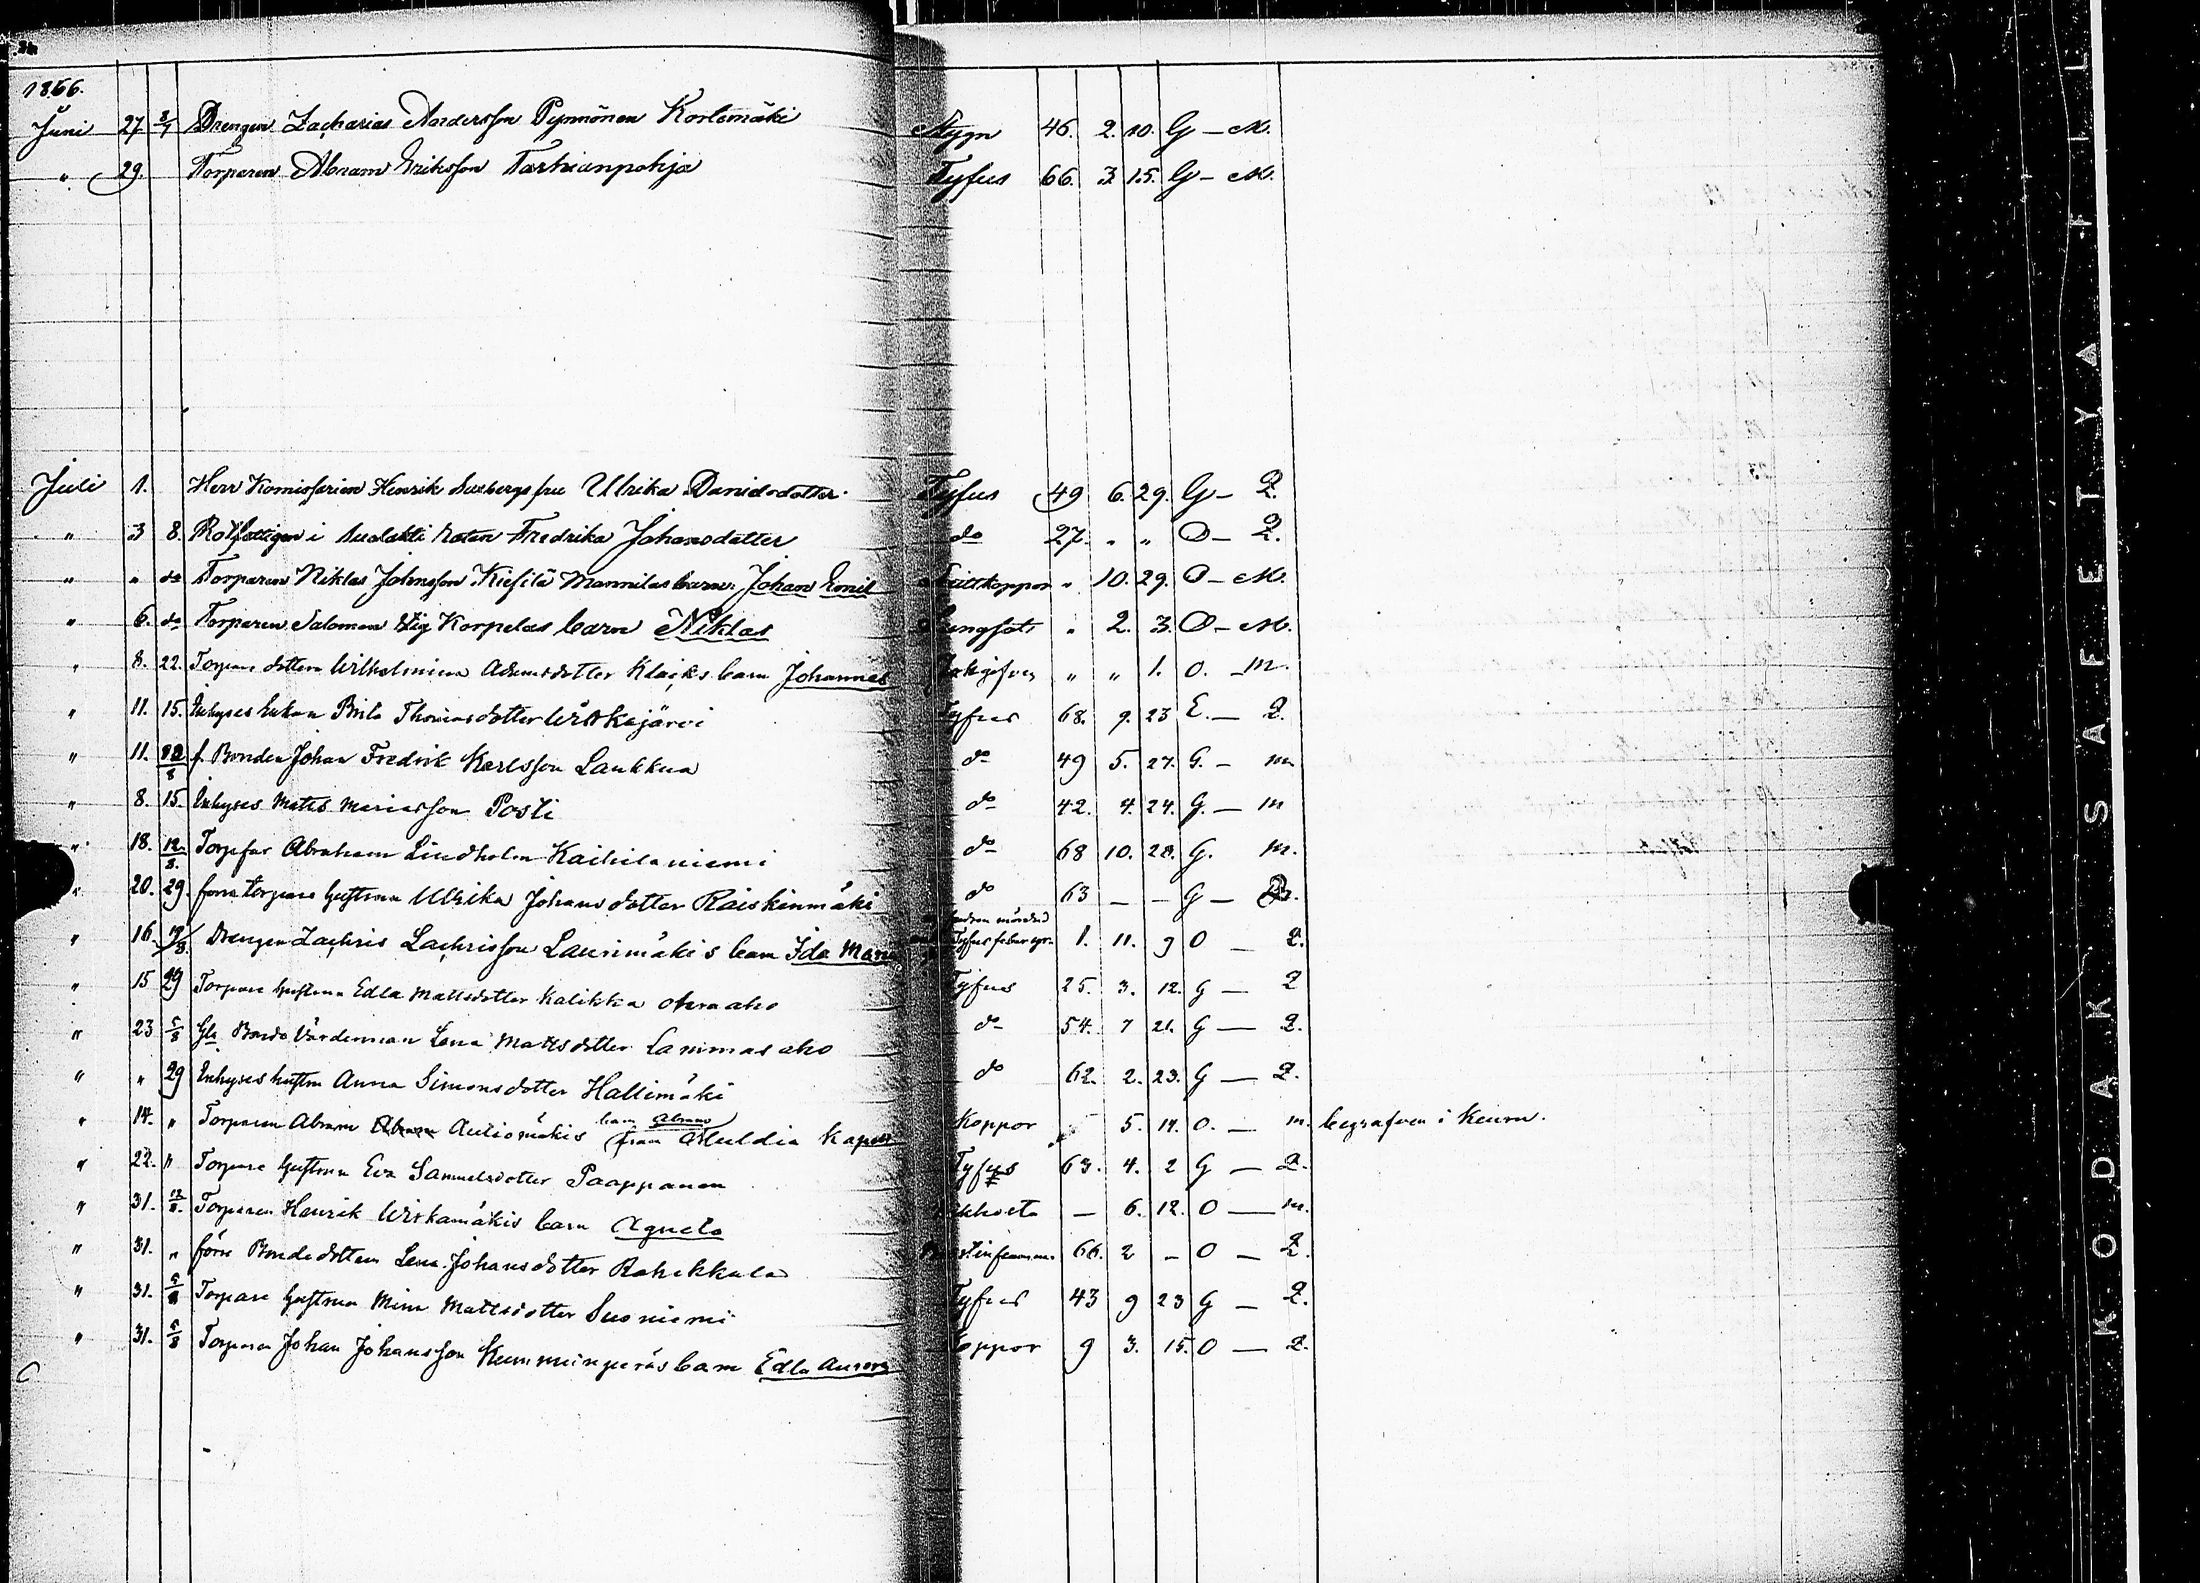 1866.
Juni 27 3/7 Drengen Zacharias Andersson Pynnönen Kortemäki Stygn 46. 2. 10. G – M.
" 29. Torparen Abram Eriksson Tarhianpohja Tyfus 66. 3. 15. G – M.
Juli 1. Herr Komissarien Henrik fru Ulrika Danidsdotter Tyfus 49 6. 29. G – Q.
" 3 8. Rotfattigen i roten Fredrika Johansdotter do 27. " " O – Q.
" " do Torparen Niklas Johnsson Kiesilä Mannilas barn Johan Emil 10. 29. O – M.
" 6. do Torparen Salomon Stig Korpelas barn Niklas Lungsot " 2. 3. O – M.
" 8. 22. Torpare dottern Wilhelmina Adamsdotter barn Johannes " " 1. O. – M.
" 11. 15. Inhyses Enkan Brita Thomasdotter Wittkajärvi Tyfus 68. 9. 23 E. – Q.
" 11. f. Bonden Johan Fredrik Karlsson Laukkua do 49 5. 27. G. – m
" 8. 15. Inhyses Matts Mariasson Posti do 42. 4. 24. G. – m
" 18. 12/8. Torpfar Abraham Lindholm Kaihilaniemi do 68 10. 28. G. m.
" 20. 29. forra torpare hustrun Ulrika Johans dotter Raiskinmäki do 63 – – G – Q.
" 16. Drengen Zachris Zachrisson Laurimäkis barn Ida Mari 1. 11. 9 O – Q.
" 15 29 Torpare hustrun Edla Mattsdotter Kalikka Tyfus 25. 3. 12. G – Q
" 23 5/8 Gla Bonde Värdinnan Lena Mattsdotter Lammasaho do 54. 7 21. G – Q.
" " 29 Inhyses hustru Anna Simonsdotter Hallimäki do 62. 2. 23. G – Q.
" 14. " Torparen Abram Autiomäkis barn Abram från Multia Kapell Koppor 5. 14. O. – m. begrafven i Keuru.
" 22. " Torpare hustrun Eva Samuelsdotter Paappanen Tyfus 63. 4. 2 G – Q.
" 31. 12/8. Torparen Henrik Wirkamäkis barn Agneta Kikhosta – 6. 12. O – m.
" 31. " förre Bonde dottern Lena Johansdotter Rahikkala 66. 2 – O – Q.
" 31. 5/8 Torpare hustrun Mina Mattsdotter Suoniemi Tyfus 43 9 23 G – Q.
" 31. 5/8 Torparen Johan Johansson barn Edla Aurora Koppor 9 3. 15. O – Q.
KODAK SAFETY A FIL